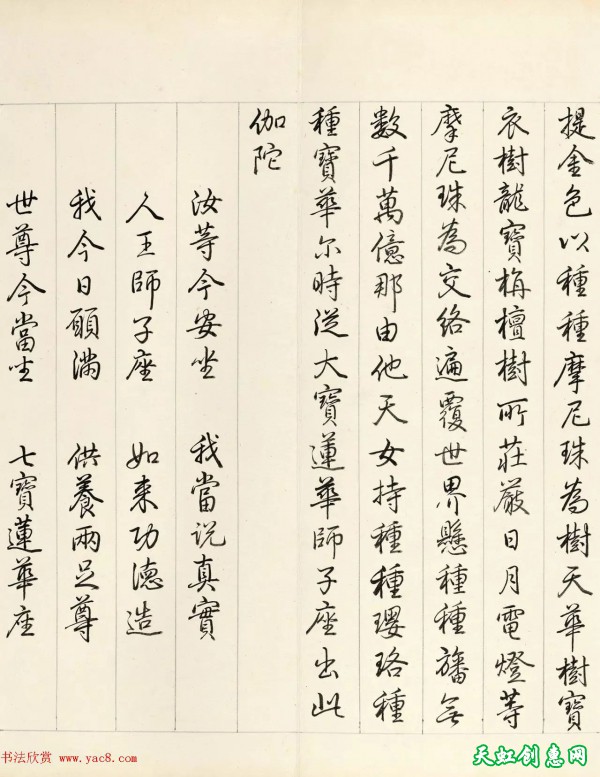 提金色以種種摩尼珠為樹天華樹寶
衣樹龍寶栴檀樹所莊嚴日月電燈等
摩尼珠為交絡遍覆世界懸種種旛無
數千萬億那由他天女持種種瓔珞種
種寶華尔時從大寶蓮華師子座出此
伽陀
汝等今安坐 我當说真實
人王師子座 如来功德造
我今日願滿 供養兩足尊
世尊今當坐 七寶蓮華座
书法欣赏 www.yac8.com
天虹创惠网